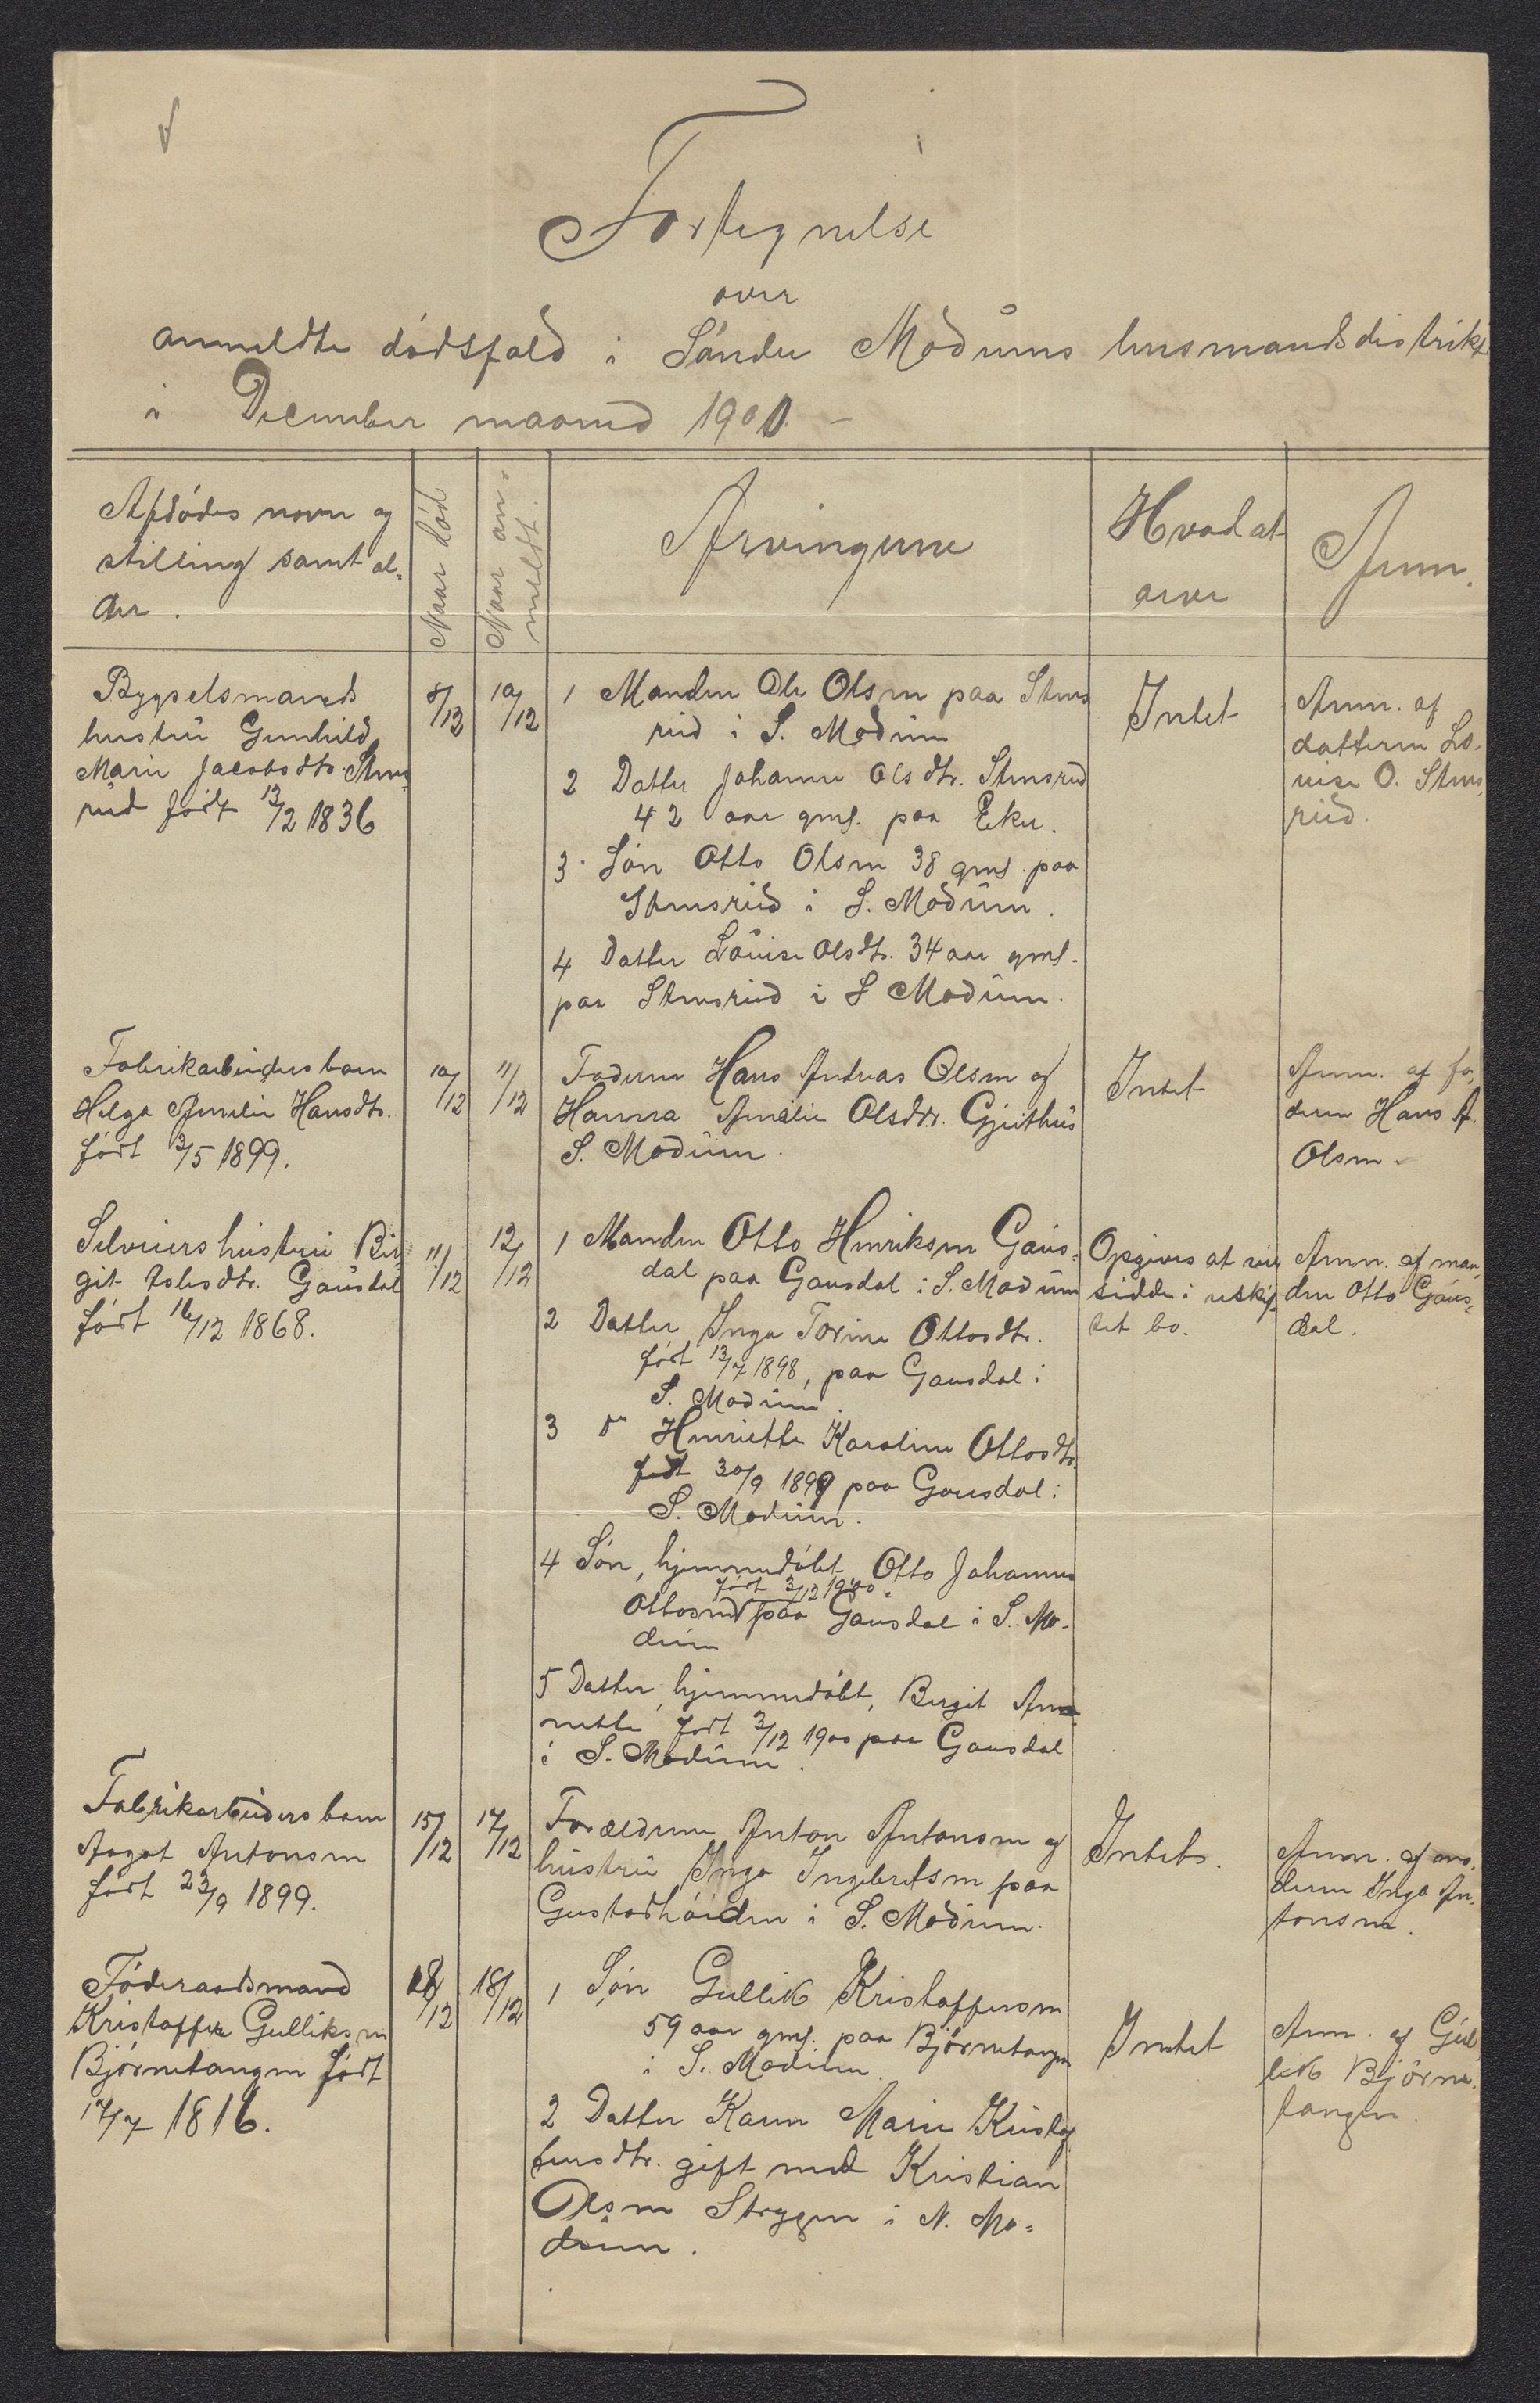 Fortegnelse
over
anmeldte dødsfald i Søndre Modums lensmandsdistrikt
i December maaned 1900. -
Afdødes navn og
stilling samt al-
der.
Naar død
Naar an-
meldt.
Arvingerne
Hvad at
arve
Anm.
Bygselsmands
hustru Gunhild
Marie Jacobsdtr. Stens-
rud født 12/2 1836
8/12
10/12
1 Manden Ole Olsen paa Stens
rud i S. Modum
2 Datter Johanne Olsdtr. Stensrud
42 aar gml. paa Eker.
3. Søn Otto Olsen 38 gml. paa
Stensrud i S. Modum.
4 Datter Louise Olsdtr. 34 aar gml.
paa Stensrud i S Modum.
Intet
Anm. af
datteren Lo-
uise O. Stens-
rud.
Fabrikarbeiders barn
Helga Amelie Hansdtr.
født 3/5 1899.
10/12
11/12
Faderen Hans Andreas Olsen og
Hanna Amalie Olsdtr. Gjeithus
S. Modum.
Intet
Anm. af fa-
deren Hans A.
Olsen.
Selveiers hustru Bir-
git Aslesdtr. Gausdal
født 16/12 1868.
11/12
12/12
1 Manden Otto Henriksen Gaus-
dal paa Gausdal i S. Modum
2 Datter Inga Torine Ottosdtr.
født 13/7 1898, paa Gausdal i
S. Modum.
3 do Henriette Karoline Ottosdtr.
født 30/9 1899 paa Gausdal i
S. Modum.
4 Søn, hjemmedøbt Otto Johannes
født 3/12 1900.
Ottosen paa Gausdal i S. Mo-
dum
5 Datter, hjemmedøbt, Birgit An-
nette født 3/12 1900 paa Gausdal
i S. Modum.
Opgives at ville
sidde i uskif-
tet bo.
Anm. af man-
den Otto Gaus-
dal.
Fabrikarbeiders barn
Aagot Antonsen
født 23/9 1899.
15/12
17/12
Forældrene Anton Antonsen og
hustru Inga Ingebretsen paa
Gustadhøiden i S. Modum.
Intet.
Anm. af mo-
deren Inga An-
tonsen.
Føderaadsmand
Kristoffer Gulliksen
Bjørnetangen født
17/7 1816.
18/12
18/12
1 Søn Gullik Kristoffersen
59 aar gml. paa Bjørnetangen
i S. Modum.
2 Datter Karen Marie Kristof
fersdtr. gift med Kristian
Olsen Strygen i N. Mo-
dum.
Intet
Anm. af Gul-
lik Bjørne-
tangen.